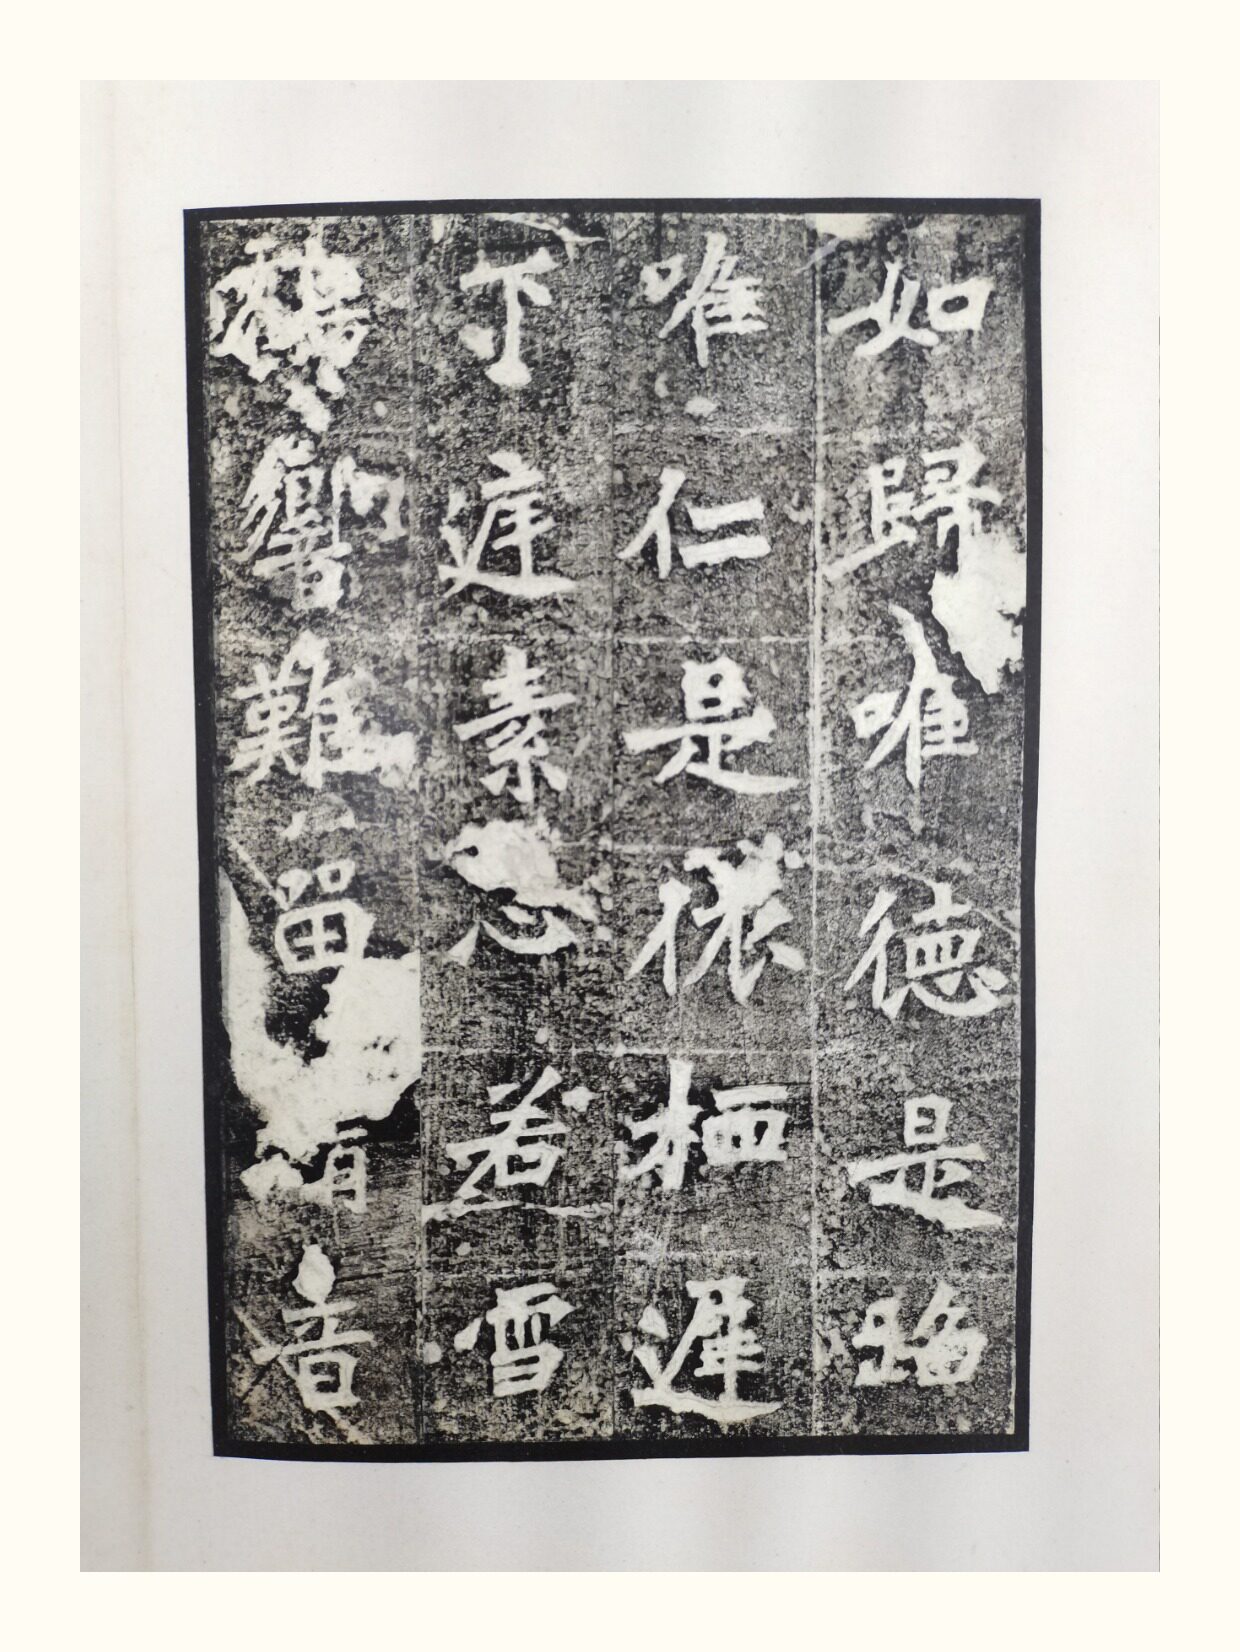 如歸唯德是蹈
唯仁是依栖遲
下素雪
響難留清音